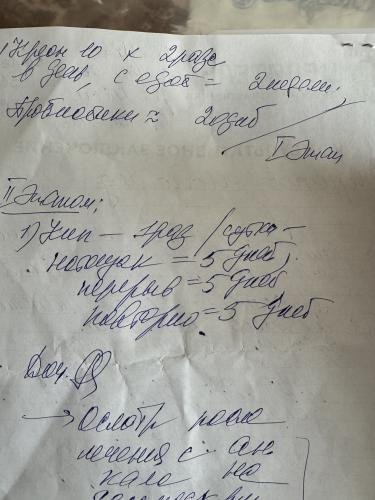 1) Креон 10 х 2 раза
в день, с едой = 2 недели.
Пробиотики ≈ 20 дней
I Этап
II Этапом:
1) – 1 раз / сутки –
натощак = 5 дней,
перерыв = 5 дней
повторно = 5 дней
→ Осмотр после
лечения с ан.
кала на